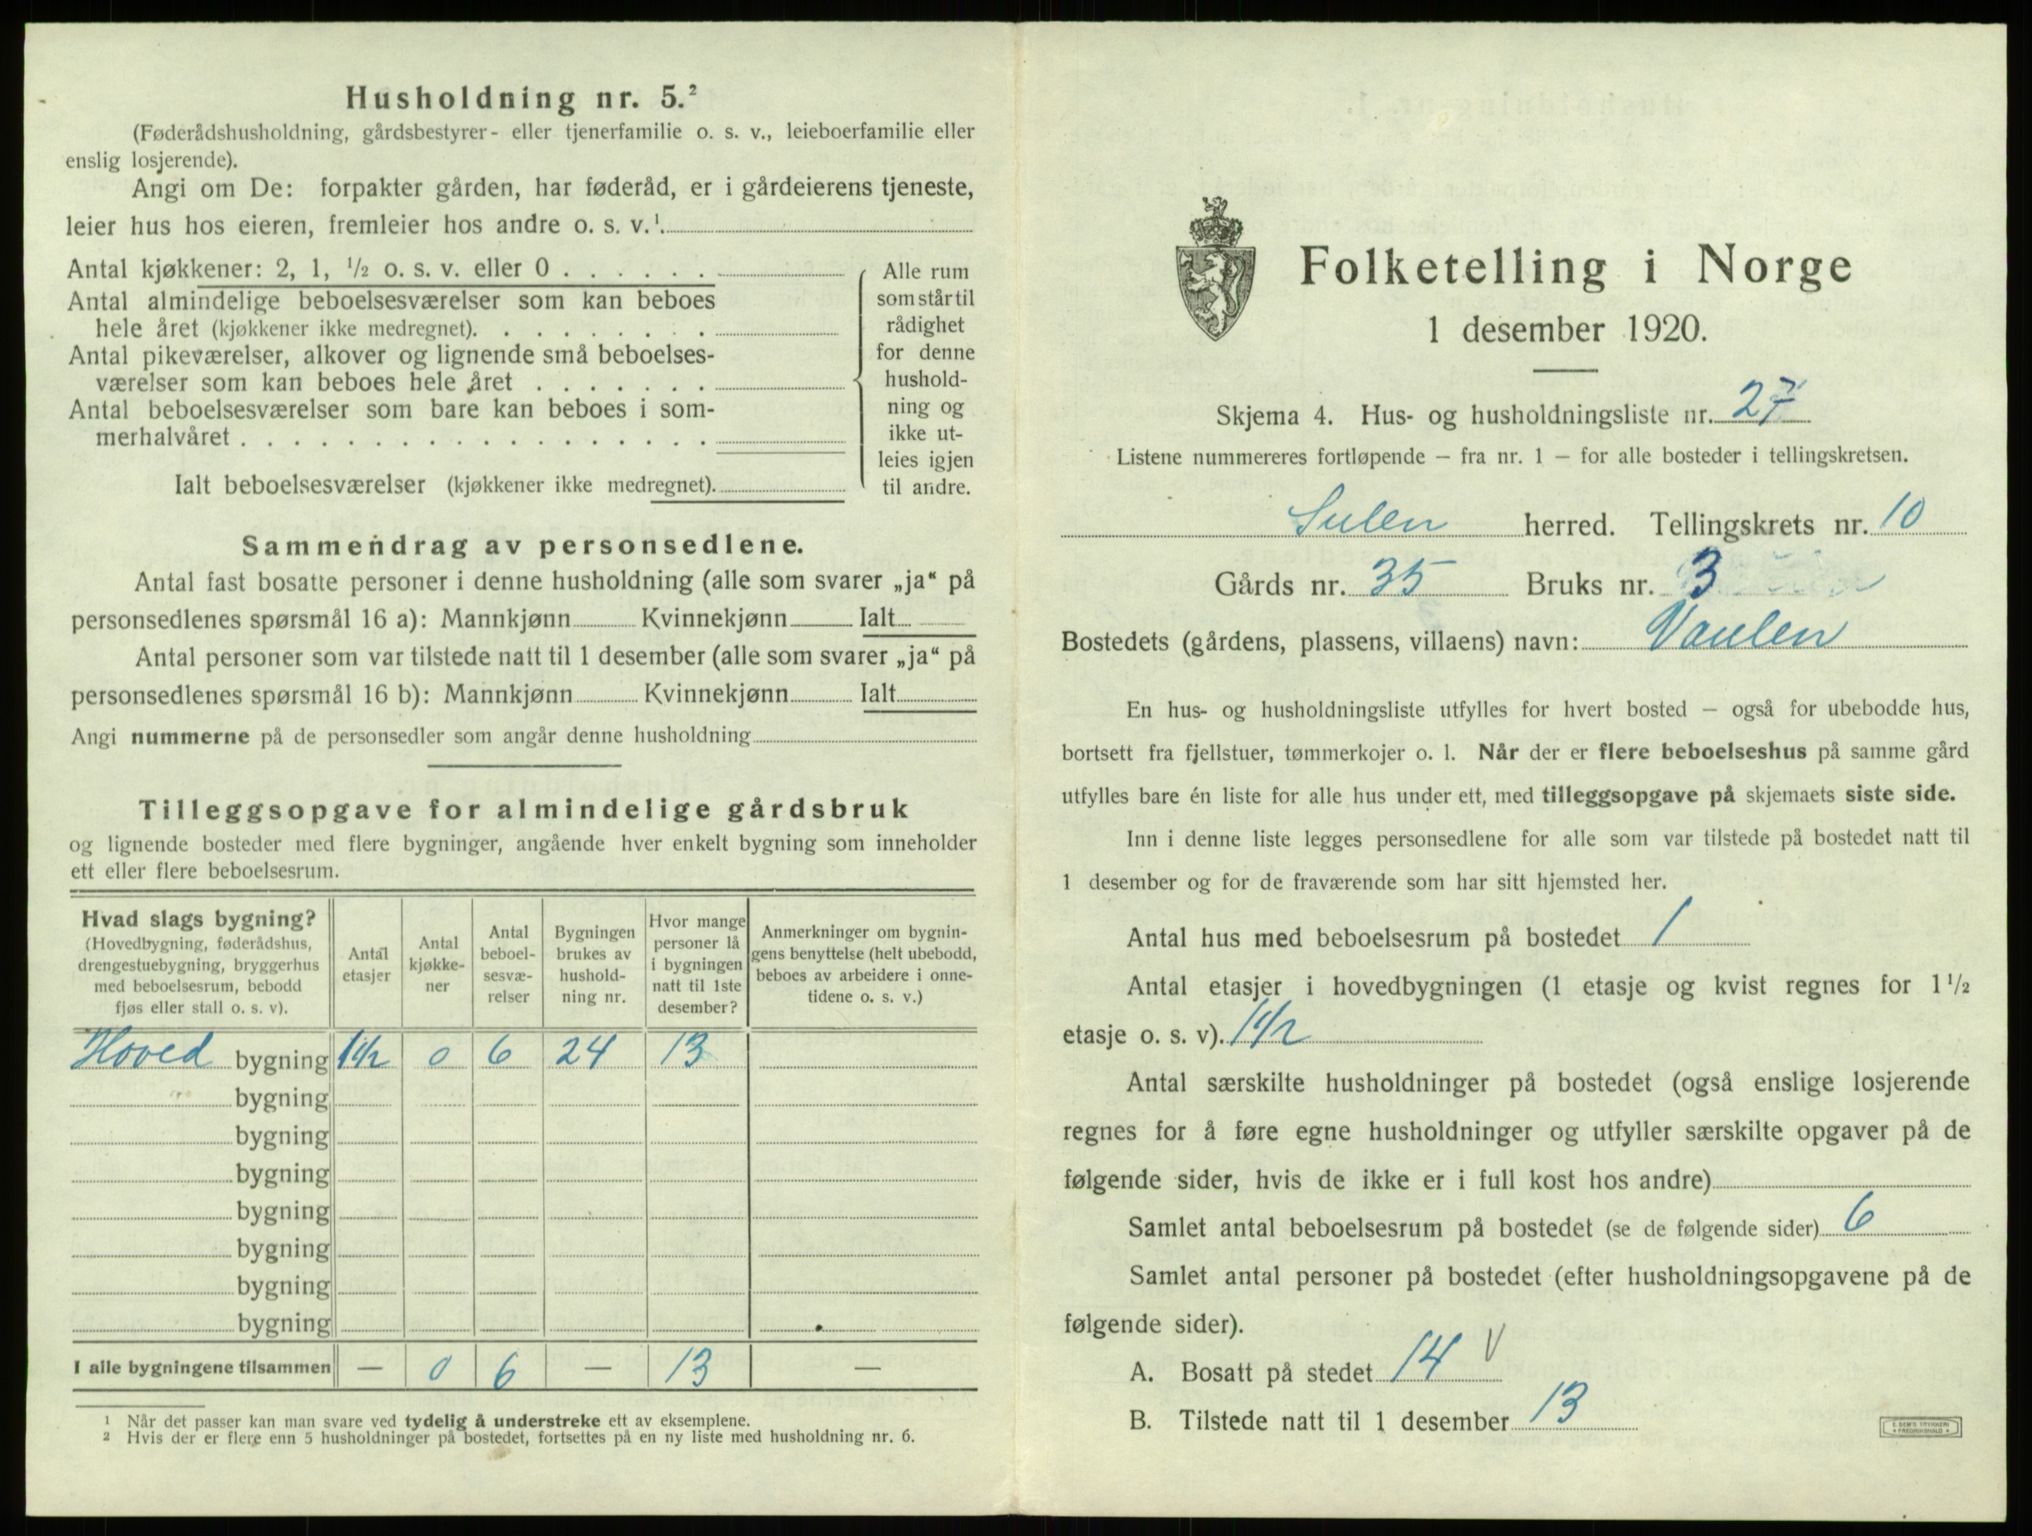 Husholdning nr. 5.²
(Føderådshusholdning, gårdsbestyrer- eller tjenerfamilie o. s. v., leieboerfamilie eller
enslig losjerende).
Angi om De: forpakter gården, har føderåd, er i gårdeierens tjeneste,
leier hus hos eieren, fremleier hos andre o. s. v.¹.
Antal kjøkkener: 2, 1, ½ o. s. v. eller 0 . . . . . .
Antal almindelige beboelsesværelser som kan beboes
hele året (kjøkkener ikke medregnet). . . . . . . .
Antal pikeværelser, alkover og lignende små beboelses-
værelser som kan beboes hele året . . . . . . .
Antal beboelsesværelser som bare kan beboes i som-
merhalvåret . . . . . . . . . . . . . . . . . .
Ialt beboelsesværelser (kjøkkener ikke medregnet).
Alle rum
som står til
rådighet
for denne
hushold-
ning og
ikke ut-
leies igjen
til andre.
Sammendrag av personsedlene.
Antal fast bosatte personer i denne husholdning (alle som svarer „ja“ på
personsedlenes spørsmål 16 a): Mannkjønn Kvinnekjønn Ialt
Antal personer som var tilstede natt til 1 desember (alle som svarer „ja“ på
personsedlenes spørsmål 16 b): Mannkjønn Kvinnekjønn Ialt
Angi nummerne på de personsedler som angår denne husholdning
Tilleggsopgave for almindelige gårdsbruk
og lignende bosteder med flere bygninger, angående hver enkelt bygning som inneholder
ett eller flere beboelsesrum.
Hvad slags bygning?
(Hovedbygning, føderådshus,
drengestuebygning, bryggerhus
med beboelsesrum, bebodd
fjøs eller stall o. s. v).
Antal
etasjer
Antal
kjøkke-
ner
Antal
beboel-
sesvæ-
relser
Bygningen
brukes av
hushold-
ning nr.
Hvor mange
personer lå
i bygningen
natt til 1ste
desember?
Anmerkninger om bygnin-
gens benyttelse (helt ubebodd,
beboes av arbeidere i onne-
tidene o. s. v.)
Hoved bygning 1½ 0 6 24 13
bygning
bygning
bygning
bygning
bygning
bygning
bygning
I alle bygningene tilsammen — 0 6 — 13 —
1 Når det passer kan man svare ved tydelig å understreke ett av eksemplene.
2 Hvis der er flere enn 5 husholdninger på bostedet, fortsettes på en ny liste med husholdning nr. 6.
Folketelling i Norge
1 desember 1920.
Skjema 4. Hus- og husholdningsliste nr. 27
Listene nummereres fortløpende – fra nr. 1 – for alle bosteder i tellingskretsen.
Sulen herred. Tellingskrets nr. 10
Gårds nr. 35 Bruks nr. 3
Bostedets (gårdens, plassens, villaens) navn: Vaulen
En hus- og husholdningsliste utfylles for hvert bosted – også for ubebodde hus,
bortsett fra fjellstuer, tømmerkojer o. l. Når der er flere beboelseshus på samme gård
utfylles bare én liste for alle hus under ett, med tilleggsopgave på skjemaets siste side.
Inn i denne liste legges personsedlene for alle som var tilstede på bostedet natt til
1 desember og for de fraværende som har sitt hjemsted her.
Antal hus med beboelsesrum på bostedet 1
Antal etasjer i hovedbygningen (1 etasje og kvist regnes for 1 ½
etasje o. s. v). 1½
Antal særskilte husholdninger på bostedet (også enslige losjerende
regnes for å føre egne husholdninger og utfyller særskilte opgaver på de
følgende sider, hvis de ikke er i full kost hos andre)
Samlet antal beboelsesrum på bostedet (se de følgende sider) 6
Samlet antal personer på bostedet (efter husholdningsopgavene på de
følgende sider).
A. Bosatt på stedet 14 V
B. Tilstede natt til 1 desember 13
E. SEM'S TRYKKERI
• FREDRIKSHALD •